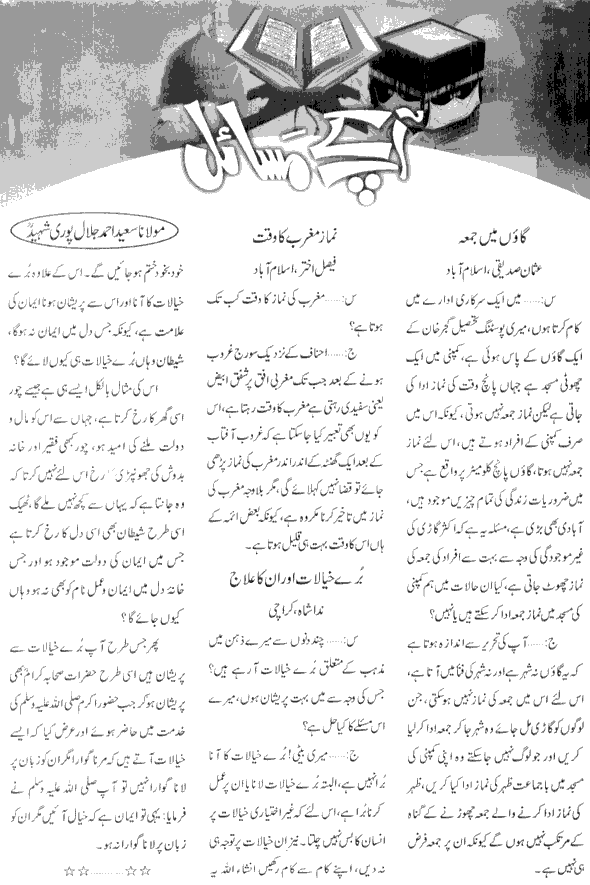 آپکے مسائل
مولانا سعید احمد جلال پوری شہیدؒ
گاؤں میں جمعہ
عثمان صدیقی، اسلام آباد
س:...... میں ایک سرکاری ادارے میں
کام کرتا ہوں، میری پوسٹنگ تحصیل گجر خان کے
ایک گاؤں کے پاس ہوئی ہے، کمپنی میں ایک
چھوٹی مسجد ہے جہاں پانچ وقت کی نماز ادا کی
جاتی ہے لیکن نماز جمعہ نہیں ہوتی، کیونکہ اس میں
صرف کمپنی کے افراد ہوتے ہیں، اس لئے نماز
جمعہ نہیں ہوتا، گاؤں پانچ کلو میٹر پر واقع ہے جس
میں ضروریات زندگی کی تمام چیزیں موجود ہیں،
آبادی بھی بڑی ہے، مسئلہ یہ ہے کہ اکثر گاڑی کی
غیر موجودگی کی وجہ سے بہت سے افراد کی جمعہ کی
نماز چھوٹ جاتی ہے، کیا ان حالات میں ہم کمپنی
کی مسجد میں نماز جمعہ ادا کر سکتے ہیں یا نہیں؟
ج:...... آپ کی تحریر سے اندازہ ہوتا ہے
کہ یہ گاؤں نہ شہر ہے اور نہ شہر کی فنا میں آتا ہے،
اس لئے اس میں جمعہ کی نماز نہیں ہوسکتی، جن
لوگوں کو گاڑی مل جائے وہ شہر جا کر جمعہ ادا کرلیا
کریں اور جو لوگ نہیں جاسکتے وہ اپنی کمپنی کی
مسجد میں با جماعت ظہر کی نماز ادا کیا کریں، ظہر
کی نماز ادا کرنے والے جمعہ چھوڑنے کے گناہ
کے مرتکب نہیں ہوں گے کیونکہ ان پر جمعہ فرض
ہی نہیں ہے۔
نماز مغرب کا وقت
فیصل اختر، اسلام آباد
س:...... مغرب کی نماز کا وقت کب تک
ہوتا ہے؟
ج:...... احناف کے نزدیک سورج غروب
ہونے کے بعد جب تک مغربی افق پر شفق ابیض
یعنی سفیدی رہتی ہے مغرب کا وقت رہتا ہے، اس
کو یوں بھی تعبیر کیا جاسکتا ہے کہ غروب آفتاب
کے بعد ایک گھنٹہ کے اندر اندر مغرب کی نماز پڑھی
جائے تو قضا نہیں کہلائے گی، مگر بلاوجہ مغرب کی
نماز میں تاخیر کرنا مکروہ ہے، کیونکہ بعض ائمہ کے
ہاں اس کا وقت بہت ہی قلیل ہوتا ہے۔
بُرے خیالات اور ان کا علاج
ندا شاہ، کراچی
س:...... چند دنوں سے میرے ذہن میں
مذہب کے متعلق بُرے خیالات آ رہے ہیں؟
جس کی وجہ سے میں بہت پریشان ہوں، میرے
اس مسئلے کا کیا حل ہے؟
ج:...... میری بیٹی! بُرے خیالات کا آنا
بُرا نہیں ہے، البتہ بُرے خیالات لانا یا ان پر عمل
کرنا بُرا ہے، اس لئے کہ غیر اختیاری خیالات پر
انسان کا بس نہیں چلتا۔ نیز ان خیالات پر توجہ ہی
نہ دیں، اپنے کام سے کام رکھیں انشاء اللہ یہ
خود بخود ختم ہو جائیں گے۔ اس کے علاوہ بُرے
خیالات کا آنا اور اس سے پریشان ہونا ایمان کی
علامت ہے، کیونکہ جس دل میں ایمان نہ ہوگا،
شیطان وہاں بُرے خیالات ہی کیوں لائے گا؟
اس کی مثال بالکل ایسے ہی ہے جیسے چور
اسی گھر کا رخ کرتا ہے، جہاں سے اس کو مال و
دولت ملنے کی امید ہو، چور کبھی فقیر اور خانہ
بدوش کی جھونپڑی کا رخ اس لئے نہیں کرتا کہ
وہ جانتا ہے کہ یہاں سے کچھ نہیں ملے گا، ٹھیک
اسی طرح شیطان بھی اسی دل کا رخ کرتا ہے
جس میں ایمان کی دولت موجود ہو اور جس
خانۂ دل میں ایمان و عمل نام کو بھی نہ ہو وہاں
کیوں جائے گا؟
پھر جس طرح آپ بُرے خیالات سے
پریشان ہیں اسی طرح حضرات صحابہ کرامؓ بھی
پریشان ہو کر جب حضور اکرم صلی اللہ علیہ وسلم کی
خدمت میں حاضر ہوئے اور عرض کیا کہ ایسے
خیالات آتے ہیں کہ مرنا گوارا مگر ان کو زبان پر
لانا گوارا نہیں تو آپ صلی اللہ علیہ وسلم نے
فرمایا: یہی تو ایمان ہے کہ خیال آئیں مگر ان کو
زبان پر لانا گوارا نہ ہو۔
☆☆..........☆☆